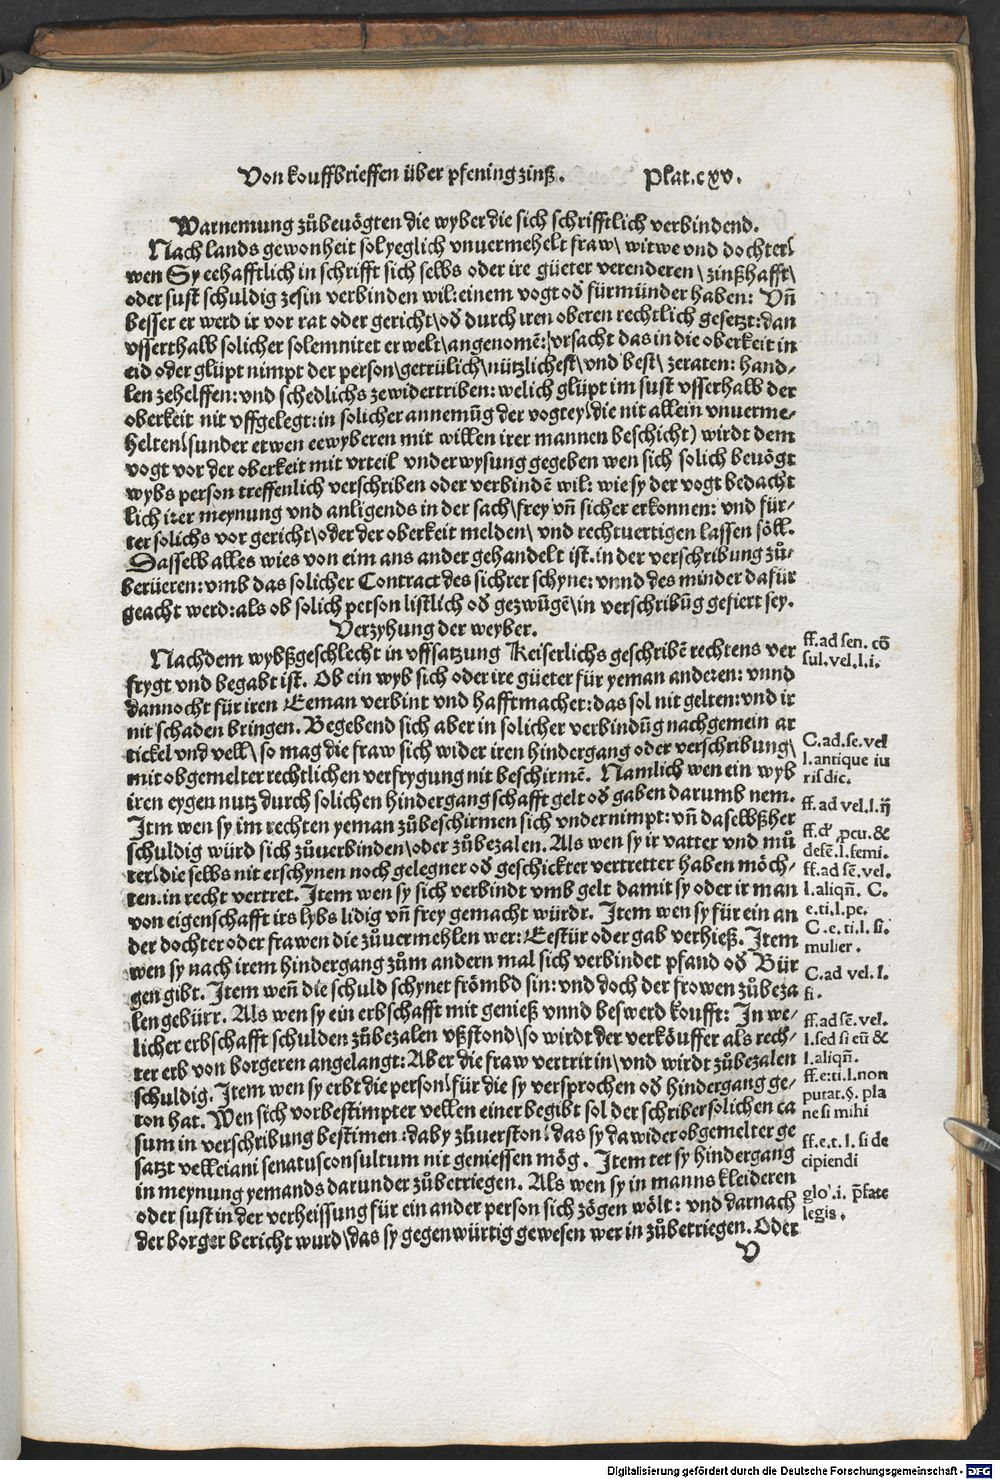 Von kouffbrieffen über pfening zinß. Plat.cxv.
Warnemung zůbeuögten die wyber die sich schrifftlich verbindend.
Nach lands gewonheit sol yeglich vnuermehelt fraw\ witwe vnd dochter\
wen Sy eehafftlich in schrifft sich selbs oder ire güeter verenderen \ zinßhafft\
oder sust schuldig zesin verbinden wil: einem vogt oď fürmünder haben: Vn̄
besser er werd ir vor rat oder gericht\ oď durch iren oberen rechtlich gesetzt: dan
vsserthalb solicher solemnitet erwelt\ angenomē: vrsacht das in die oberkeit in
eid oder glüpt nimpt der person\ getrülich\ nützlichest\ vnd best\ zeraten: hand-
len zehelffen: vnd schedlichs zewidertriben: welich glüpt im sust vsserhalb der
oberkeit nit vffgelegt: in solicher annemūg der vogtey (die nit allein vnuerme-
helten (sunder etwen eewyberen mit willen irer mannen beschicht) wirdt dem
vogt vor der oberkeit mit vrteil vnderwysung gegeben wen sich solich beuögt
wybs person treffenlich verschriben oder verbindē wil: wie sy der vogt bedacht
lich irer meynung vnd anligends in der sach\ frey vn̄ sicher erkonnen: vnd für-
ter solichs vor gericht\ oder der oberkeit melden\ vnd rechtuertigen lassen söll.
Dasselb alles wies von eim ans ander gehandelt ist. in der verschribung zů-
berüeren: vmb das solicher Contract des sichrer schyne: vnnd des minder dafür
geacht werd: als ob solich person listlich oď gezwūgē\ in verschribūg gefiert sey.
Verzyhung der weyber.
Nachdem wybßgeschlecht in vffsatzung Keiserlichs geschribē rechtens ver
frygt vnd begabt ist. Ob ein wyb sich oder ire güeter für yeman anderen: vnnd
dannocht für iren Eeman verbint vnd hafft machet: das sol nit gelten: vnd ir
nit schaden bringen. Begebend sich aber in solicher verbindūg nachgemein ar
tickel vnd vell\ so mag die fraw sich wider iren hindergang oder verschribung\
mit obgemelter rechtlichen verfrygung nit beschirmē. Namlich wen ein wyb
iren eygen nutz durch solichen hindergang schafft gelt oď gaben darumb nem.
Itm wen sy im rechten yeman zůbeschirmen sich vndernimpt: vn̄ daselbßher
schuldig würd sich zůuerbinden\ oder zůbezalen. Als wen sy ir vatter vnd mů
ter (die selbs nit erschynen noch gelegner oď geschickter vertretter haben möch-
ten. in recht vertret. Item wen sy sich verbindt vmb gelt damit sy oder ir man
von eigenschafft irs lybs lidig vn̄ frey gemacht würdr. Item wen sy für ein an
der dochter oder frawen die zůuermehlen wer: Eestür oder gab verhieß. Item
wen sy nach irem hindergang zům andern mal sich verbindet pfand oď Bür
gen gibt. Item wen̄ die schuld schynet frömbd sin: vnd doch der frowen zůbeza
len gebürr. Als wen sy ein erbschafft mit genieß vnnd beswerd koufft: In we-
licher erbschafft schulden zůbezalen vßstond\ so wirdt der verköuffer als rech-
ter erb von borgeren angelangt: Aber die fraw vertrit in\ vnd wirdt zůbezalen
schuldig. Item wen sy erbt die person (für die sy versprochen oď hindergang ge-
ton hat. Wen sich vorbestimpter vellen einer begibt sol der schriber solichen ca
sum in verschribung bestimen: daby zůuerston: das sy da wider obgemelter ge
satzt velleiani senatusconsultum nit geniessen mög. Item tet sy hindergang
in meynung yemands darunder zůbetriegen. Als wen sy in manns kleideren
oder sust in der verheissung für ein ander person sich zögen wölt: vnd darnach
der borger bericht wurd\ das sy gegenwürtig gewesen wer in zůbetriegen. Oder
V
ff. ad sen. cō
sul. vel. l. i.
C. ad. se. vel
l. antique iu
ris dic.
ff. ad vel. l. ij
ff. ď pcu. &
defē. l. femi.
ff. ad sē. vel.
l. aliqn̄. C.
e. ti. l. pe.
C. e. ti. l. si.
mulier.
C. ad vel. l.
si.
ff. ad sē. vel.
l. sed si eū &
l. aliqn̄.
ff. e: ti. l. non
putat. §. pla
ne si mihi
ff. e. t. l. si de
cipiendi
glo'. i. p̄fate
legis.
Digitalisierung gefördert durch die Deutsche Forschungsgemeinschaft - DFG